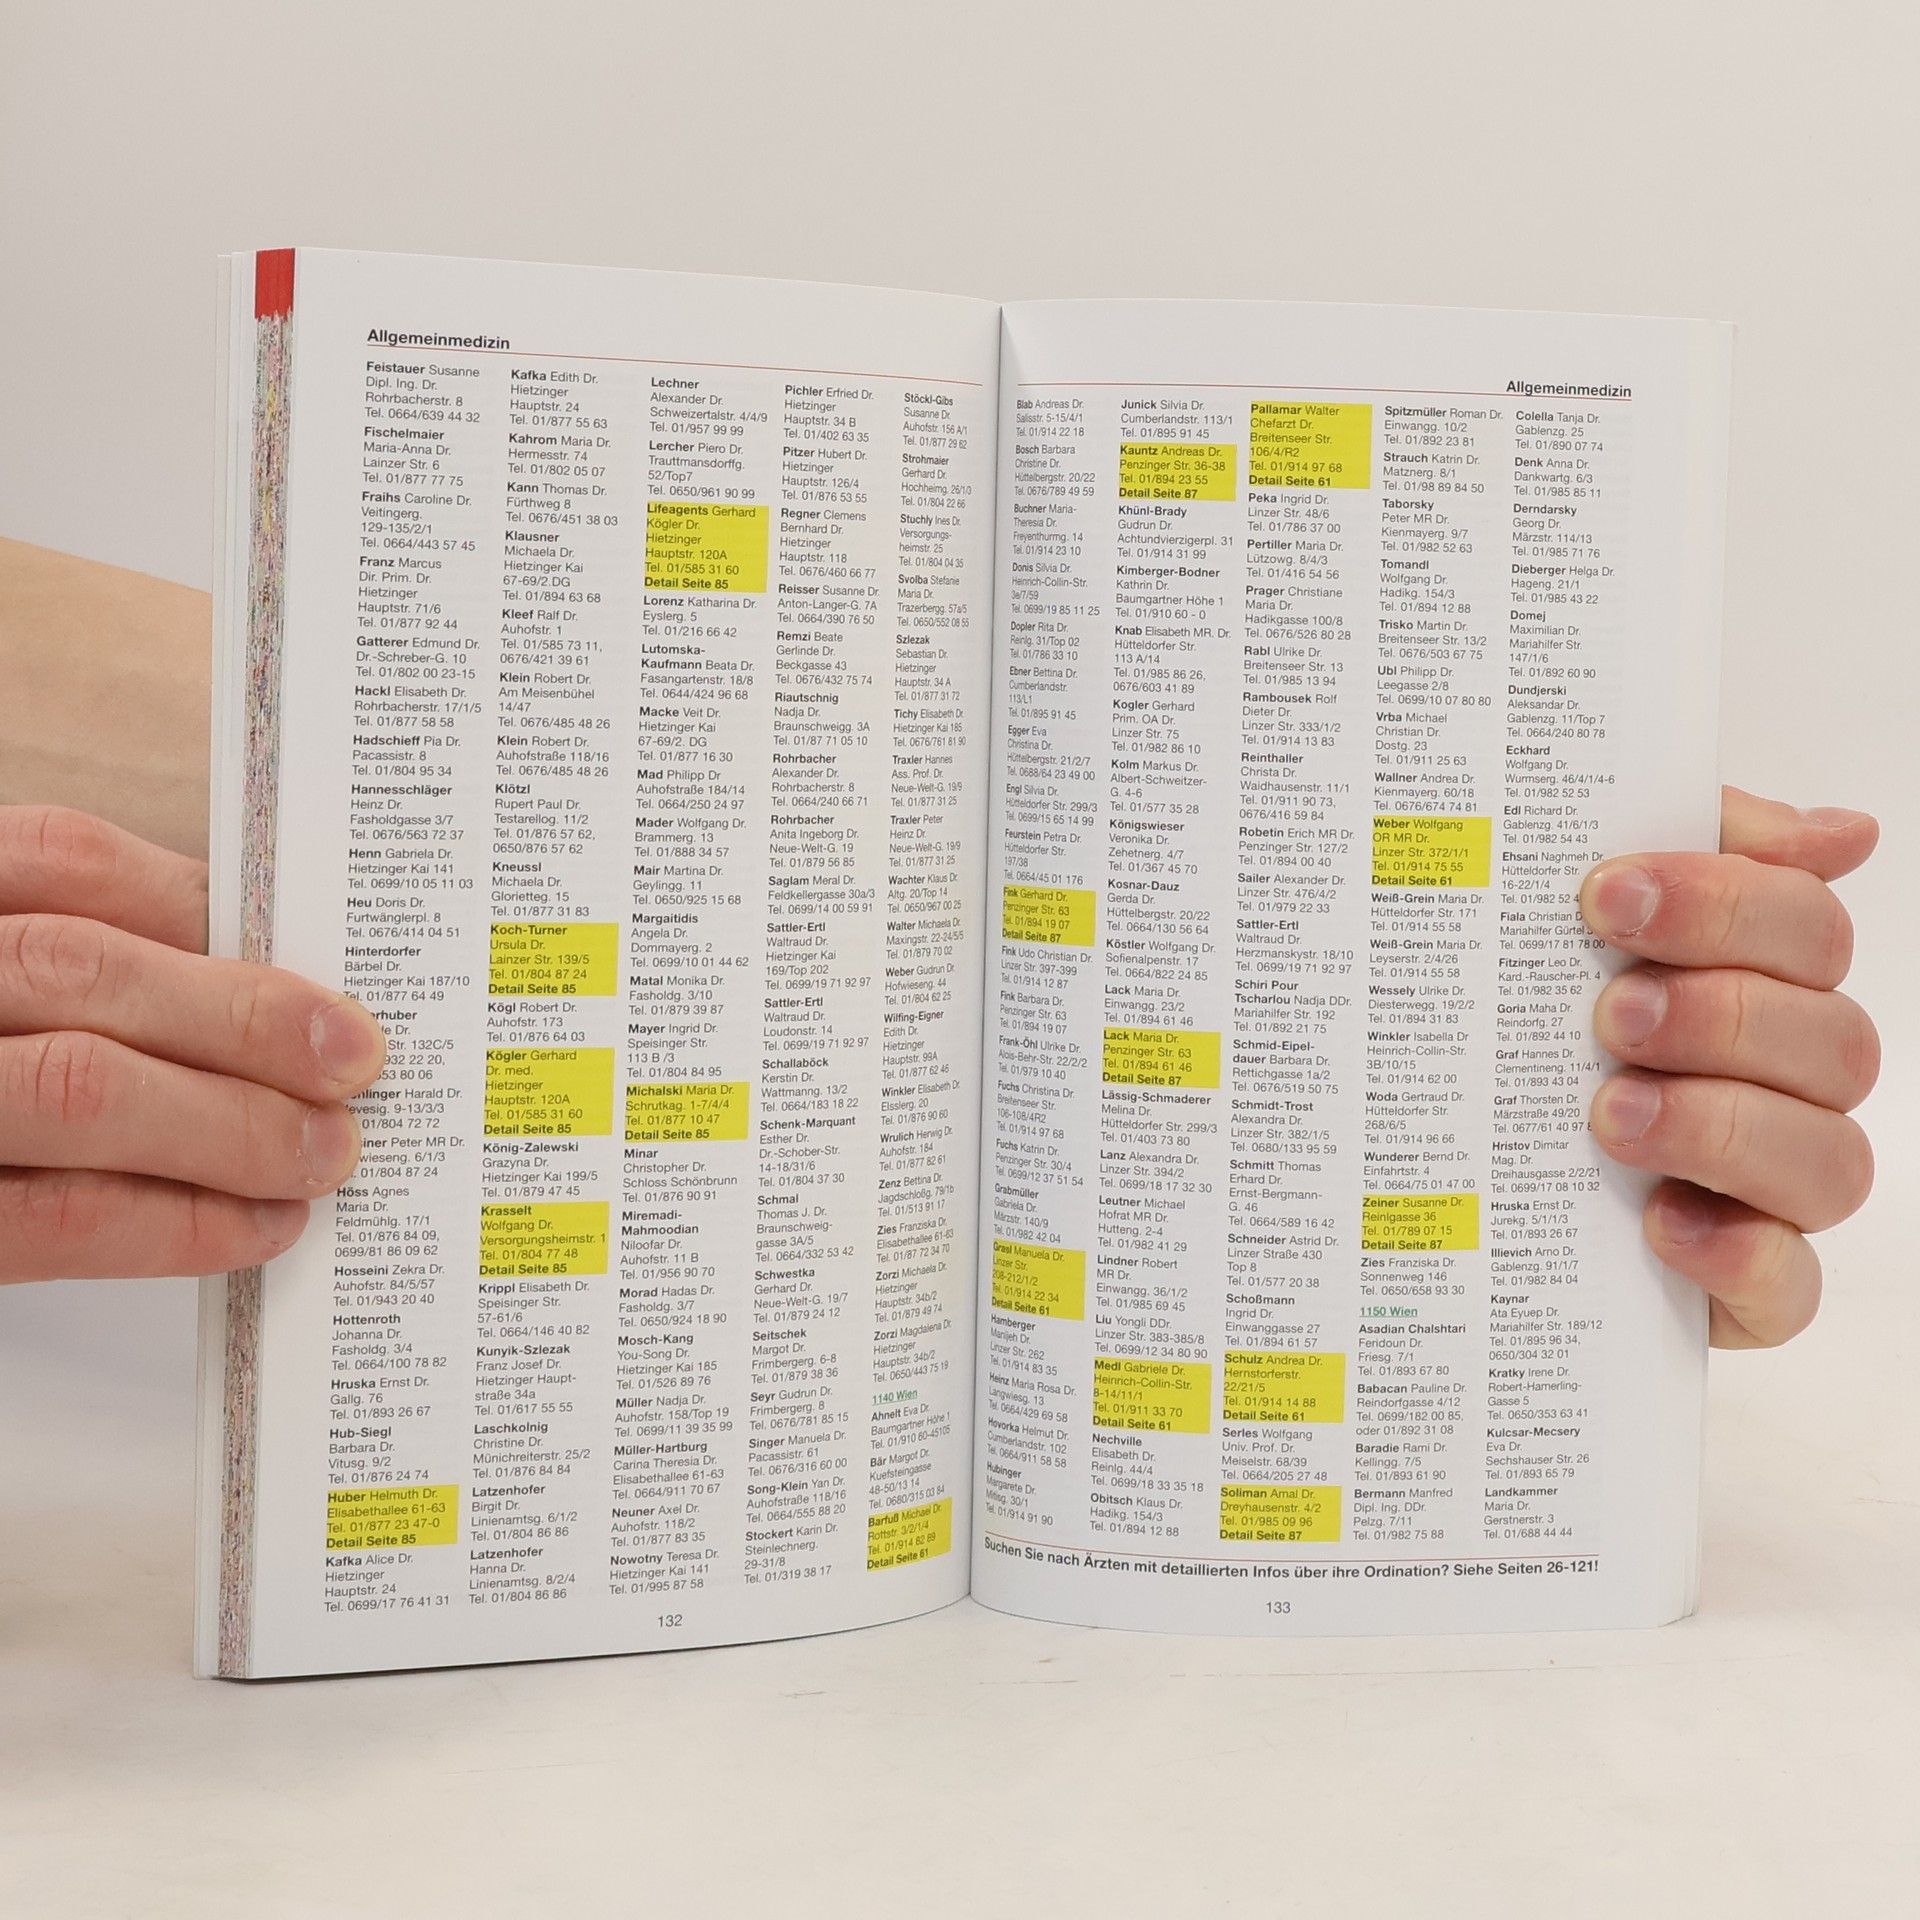 Allgemeinmedizin
Feistauer Susanne
Dipl. Ing. Dr.
Rohrbacherstr. 8
Tel. 0664/639 44 32
Fischelmaier
Maria-Anna Dr.
Lainzer Str. 6
Tel. 01/877 77 75
Fraihs Caroline Dr.
Veitingerg.
129-135/2/1
Tel. 0664/443 57 45
Franz Marcus
Dir. Prim. Dr.
Hietzinger
Hauptstr. 71/6
Tel. 01/877 92 44
Gatterer Edmund Dr.
Dr.-Schreber-G. 10
Tel. 01/802 00 23-15
Hackl Elisabeth Dr.
Rohrbacherstr. 17/1/5
Tel. 01/877 58 58
Hadschieff Pia Dr.
Pacassistr. 8
Tel. 01/804 95 34
Hannesschläger
Heinz Dr.
Fasholdgasse 3/7
Tel. 0676/563 72 37
Henn Gabriela Dr.
Hietzinger Kai 141
Tel. 0699/10 05 11 03
Heu Doris Dr.
Furtwänglerpl. 8
Tel. 0676/414 04 51
Hinterdorfer
Bärbel Dr.
Hietzinger Kai 187/10
Tel. 01/877 64 49
Dr.
Str. 132C/5
932 22 20,
53 80 06
Harald Dr.
9-13/3/3
01/804 72 72
Peter MR Dr.
6/1/3
01/804 87 24
Höss Agnes
Maria Dr.
Feldmühlg. 17/1
Tel. 01/876 84 09,
0699/81 86 09 62
Hosseini Zekra Dr.
Auhofstr. 84/5/57
Tel. 01/943 20 40
Hottenroth
Johanna Dr.
Fasholdg. 3/4
Tel. 0664/100 78 82
Hruska Ernst Dr.
Gallg. 76
Tel. 01/893 26 67
Hub-Siegl
Barbara Dr.
Vitusg. 9/2
Tel. 01/876 24 74
Huber Helmuth Dr.
Elisabethallee 61-63
Tel. 01/877 23 47-0
Detail Seite 85
Kafka Alice Dr.
Hietzinger
Hauptstr. 24
Tel. 0699/17 76 41 31
Kafka Edith Dr.
Hietzinger
Hauptstr. 24
Tel. 01/877 55 63
Kahrom Maria Dr.
Hermesstr. 74
Tel. 01/802 05 07
Kann Thomas Dr.
Fürthweg 8
Tel. 0676/451 38 03
Klausner
Michaela Dr.
Hietzinger Kai
67-69/2.DG
Tel. 01/894 63 68
Kleef Ralf Dr.
Auhofstr. 1
Tel. 01/585 73 11,
0676/421 39 61
Klein Robert Dr.
Am Meisenbühel
14/47
Tel. 0676/485 48 26
Klein Robert Dr.
Auhofstraße 118/16
Tel. 0676/485 48 26
Klötzl
Rupert Paul Dr.
Testarellog. 11/2
Tel. 01/876 57 62,
0650/876 57 62
Kneussl
Michaela Dr.
Glorietteg. 15
Tel. 01/877 31 83
Koch-Turner
Ursula Dr.
Lainzer Str. 139/5
Tel. 01/804 87 24
Detail Seite 85
Kögl Robert Dr.
Auhofstr. 173
Tel. 01/876 64 03
Kögler Gerhard
Dr. med.
Hietzinger
Hauptstr. 120A
Tel. 01/585 31 60
Detail Seite 85
König-Zalewski
Grazyna Dr.
Hietzinger Kai 199/5
Tel. 01/879 47 45
Krasselt
Wolfgang Dr.
Versorgungsheimstr. 1
Tel. 01/804 77 48
Detail Seite 85
Krippl Elisabeth Dr.
Speisinger Str.
57-61/6
Tel. 0664/146 40 82
Kunyik-Szlezak
Franz Josef Dr.
Hietzinger Haupt-
straße 34a
Tel. 01/617 55 55
Laschkolnig
Christine Dr.
Münichreiterstr. 25/2
Tel. 01/876 84 84
Latzenhofer
Birgit Dr.
Linienamtsg. 6/1/2
Tel. 01/804 86 86
Latzenhofer
Hanna Dr.
Linienamtsg. 8/2/4
Tel. 01/804 86 86
Lechner
Alexander Dr.
Schweizertalstr. 4/4/9
Tel. 01/957 99 99
Lercher Piero Dr.
Trauttmansdorffg.
52/Top7
Tel. 0650/961 90 99
Lifeagents Gerhard
Kögler Dr.
Hietzinger
Hauptstr. 120A
Tel. 01/585 31 60
Detail Seite 85
Lorenz Katharina Dr.
Eyslerg. 5
Tel. 01/216 66 42
Lutomska-
Kaufmann Beata Dr.
Fasangartenstr. 18/8
Tel. 0644/424 96 68
Macke Veit Dr.
Hietzinger Kai
67-69/2. DG
Tel. 01/877 16 30
Mad Philipp Dr
Auhofstraße 184/14
Tel. 0664/250 24 97
Mader Wolfgang Dr.
Brammerg. 13
Tel. 01/888 34 57
Mair Martina Dr.
Geylingg. 11
Tel. 0650/925 15 68
Margaitidis
Angela Dr.
Dommayerg. 2
Tel. 0699/10 01 44 62
Matal Monika Dr.
Fasholdg. 3/10
Tel. 01/879 39 87
Mayer Ingrid Dr.
Speisinger Str.
113 B /3
Tel. 01/804 84 95
Michalski Maria Dr.
Schrutkag. 1-7/4/4
Tel. 01/877 10 47
Detail Seite 85
Minar
Christopher Dr.
Schloss Schönbrunn
Tel. 01/876 90 91
Miremadi-
Mahmoodian
Niloofar Dr.
Auhofstr. 11 B
Tel. 01/956 90 70
Morad Hadas Dr.
Fasholdg. 3/7
Tel. 0650/924 18 90
Mosch-Kang
You-Song Dr.
Hietzinger Kai 185
Tel. 01/526 89 76
Müller Nadja Dr.
Auhofstr. 158/Top 19
Tel. 0699/11 39 35 99
Müller-Hartburg
Carina Theresia Dr.
Elisabethallee 61-63
Tel. 0664/911 70 67
Neuner Axel Dr.
Auhofstr. 118/2
Tel. 01/877 83 35
Nowotny Teresa Dr.
Hietzinger Kai 141
Tel. 01/995 87 58
Pichler Erfried Dr.
Hietzinger
Hauptstr. 34 B
Tel. 01/402 63 35
Pitzer Hubert Dr.
Hietzinger
Hauptstr. 126/4
Tel. 01/876 53 55
Regner Clemens
Bernhard Dr.
Hietzinger
Hauptstr. 118
Tel. 0676/460 66 77
Reisser Susanne Dr.
Anton-Langer-G. 7A
Tel. 0664/390 76 50
Remzi Beate
Gerlinde Dr.
Beckgasse 43
Tel. 0676/432 75 74
Riautschnig
Nadja Dr.
Braunschweigg. 3A
Tel. 01/87 71 05 10
Rohrbacher
Alexander Dr.
Rohrbacherstr. 8
Tel. 0664/240 66 71
Rohrbacher
Anita Ingeborg Dr.
Neue-Welt-G. 19
Tel. 01/879 56 85
Saglam Meral Dr.
Feldkellergasse 30a/3
Tel. 0699/14 00 59 91
Sattler-Ertl
Waltraud Dr.
Hietzinger Kai
169/Top 202
Tel. 0699/19 71 92 97
Sattler-Ertl
Waltraud Dr.
Loudonstr. 14
Tel. 0699/19 71 92 97
Schallaböck
Kerstin Dr.
Wattmanng. 13/2
Tel. 0664/183 18 22
Schenk-Marquant
Esther Dr.
Dr.-Schober-Str.
14-18/31/6
Tel. 01/804 37 30
Schmal
Thomas J. Dr.
Braunschweig-
gasse 3A/5
Tel. 0664/332 53 42
Schwestka
Gerhard Dr.
Neue-Welt-G. 19/7
Tel. 01/879 24 12
Seitschek
Margot Dr.
Frimbergerg. 6-8
Tel. 01/879 38 36
Seyr Gudrun Dr.
Frimbergerg. 8
Tel. 0676/781 85 15
Singer Manuela Dr.
Pacassistr. 61
Tel. 0676/316 60 00
Song-Klein Yan Dr.
Auhofstraße 118/16
Tel. 0664/555 88 20
Stockert Karin Dr.
Steinlechnerg.
29-31/8
Tel. 01/319 38 17
Stöckl-Gibs
Susanne Dr.
Auhofstr. 156 A/1
Tel. 01/877 29 62
Strohmaier
Gerhard Dr.
Hochheimg. 26/1/3
Tel. 01/804 22 66
Stuchly Ines Dr.
Versorgungs-
heimstr. 25
Tel. 01/804 04 35
Svolba Stefanie
Maria Dr.
Trazerbergg. 57a/5
Tel. 0650/552 08 55
Szlezak
Sebastian Dr.
Hietzinger
Hauptstr. 34 A
Tel. 01/877 31 72
Tichy Elisabeth Dr.
Hietzinger Kai 185
Tel. 0676/761 81 90
Traxler Hannes
Ass. Prof. Dr.
Neue-Welt-G. 19/9
Tel. 01/877 31 25
Traxler Peter
Heinz Dr.
Neue-Welt-G. 19/9
Tel. 01/877 31 25
Wachter Klaus Dr.
Altg. 20/Top 14
Tel. 0650/967 00 25
Walter Michaela Dr.
Maxingstr. 22-24/5/5
Tel. 01/879 70 02
Weber Gudrun Dr.
Hofwieseng. 44
Tel. 01/804 62 25
Wilfing-Eigner
Edith Dr.
Hietzinger
Hauptstr. 99A
Tel. 01/877 62 46
Winkler Elisabeth Dr.
Elsslerg. 20
Tel. 01/876 90 60
Wrulich Herwig Dr.
Auhofstr. 184
Tel. 01/877 82 61
Zenz Bettina Dr.
Jagdschloßg. 79/1b
Tel. 01/513 91 17
Zies Franziska Dr.
Elisabethallee 61-63
Tel. 01/87 72 34 70
Zorzi Michaela Dr.
Hietzinger
Hauptstr. 34b/2
Tel. 01/879 49 74
Zorzi Magdalena Dr.
Hietzinger
Hauptstr. 34b/2
Tel. 0650/443 75 19
1140 Wien
Ahnelt Eva Dr.
Baumgartner Höhe 1
Tel. 01/910 60-45105
Bär Margot Dr.
Kuefsteingasse
48-50/13 14
Tel. 0680/315 03 84
Barfuß Michael Dr.
Rottstr. 3/2/1/4
Tel. 01/914 82 69
Detail Seite 61
132
Allgemeinmedizin
Blab Andreas Dr.
Salisstr. 5-15/4/1
Tel. 01/914 22 18
Bosch Barbara
Christine Dr.
Hüttelbergstr. 20/22
Tel. 0676/789 49 59
Buchner Maria-
Theresia Dr.
Freyenthurmg. 14
Tel. 01/914 23 10
Donis Silvia Dr.
Heinrich-Collin-Str.
3e/7/59
Tel. 0699/19 85 11 25
Dopler Rita Dr.
Reinlg. 31/Top 02
Tel. 01/786 33 10
Ebner Bettina Dr.
Cumberlandstr.
113/L1
Tel. 01/895 91 45
Egger Eva
Christina Dr.
Hüttelbergstr. 21/2/7
Tel. 0688/64 23 49 00
Engl Silvia Dr.
Hütteldorfer Str. 299/3
Tel. 0699/15 65 14 99
Feurstein Petra Dr.
Hütteldorfer Str.
197/38
Tel. 0664/45 01 176
Fink Gerhard Dr.
Penzinger Str. 63
Tel. 01/894 19 07
Detail Seite 87
Fink Udo Christian Dr.
Linzer Str. 397-399
Tel. 01/914 12 87
Fink Barbara Dr.
Penzinger Str. 63
Tel. 01/894 19 07
Frank-Öhl Ulrike Dr.
Alois-Behr-Str. 22/2/2
Tel. 01/979 10 40
Fuchs Christina Dr.
Breitenseer Str.
106-108/4R2
Tel. 01/914 97 68
Fuchs Katrin Dr.
Penzinger Str. 30/4
Tel. 0699/12 37 51 54
Grabmüller
Gabriela Dr.
Märzstr. 140/9
Tel. 01/982 42 04
Grasl Manuela Dr.
Linzer Str.
208-212/1/2
Tel. 01/914 22 34
Detail Seite 61
Hamberger
Manijeh Dr.
Linzer Str. 262
Tel. 01/914 83 35
Heinz Maria Rosa Dr.
Langwiesg. 13
Tel. 0664/429 69 58
Hovorka Helmut Dr.
Cumberlandstr. 102
Tel. 0664/911 58 58
Hubinger
Margarete Dr.
Mitisg. 30/1
Tel. 01/914 91 90
Junick Silvia Dr.
Cumberlandstr. 113/1
Tel. 01/895 91 45
Kauntz Andreas Dr.
Penzinger Str. 36-38
Tel. 01/894 23 55
Detail Seite 87
Khünl-Brady
Gudrun Dr.
Achtundvierzigerpl. 31
Tel. 01/914 31 99
Kimberger-Bodner
Kathrin Dr.
Baumgartner Höhe 1
Tel. 01/910 60 - 0
Knab Elisabeth MR. Dr.
Hütteldorfer Str.
113 A/14
Tel. 01/985 86 26,
0676/603 41 89
Kogler Gerhard
Prim. OA Dr.
Linzer Str. 75
Tel. 01/982 86 10
Kolm Markus Dr.
Albert-Schweitzer-
G. 4-6
Tel. 01/577 35 28
Königswieser
Veronika Dr.
Zehetnerg. 4/7
Tel. 01/367 45 70
Kosnar-Dauz
Gerda Dr.
Hüttelbergstr. 20/22
Tel. 0664/130 56 64
Köstler Wolfgang Dr.
Sofienalpenstr. 17
Tel. 0664/822 24 85
Lack Maria Dr.
Einwangg. 23/2
Tel. 01/894 61 46
Lack Maria Dr.
Penzinger Str. 63
Tel. 01/894 61 46
Detail Seite 87
Lässig-Schmaderer
Melina Dr.
Hütteldorfer Str. 299/3
Tel. 01/403 73 80
Lanz Alexandra Dr.
Linzer Str. 394/2
Tel. 0699/18 17 32 30
Leutner Michael
Hofrat MR Dr.
Hutteng. 2-4
Tel. 01/982 41 29
Lindner Robert
MR Dr.
Einwangg. 36/1/2
Tel. 01/985 69 45
Liu Yongli DDr.
Linzer Str. 383-385/8
Tel. 0699/12 34 80 90
Medl Gabriele Dr.
Heinrich-Collin-Str.
8-14/11/1
Tel. 01/911 33 70
Detail Seite 61
Nechville
Elisabeth Dr.
Reinlg. 44/4
Tel. 0699/18 33 35 18
Obitsch Klaus Dr.
Hadikg. 154/3
Tel. 01/894 12 88
Pallamar Walter
Chefarzt Dr.
Breitenseer Str.
106/4/R2
Tel. 01/914 97 68
Detail Seite 61
Peka Ingrid Dr.
Linzer Str. 48/6
Tel. 01/786 37 00
Pertiller Maria Dr.
Lützowg. 8/4/3
Tel. 01/416 54 56
Prager Christiane
Maria Dr.
Hadikgasse 100/8
Tel. 0676/526 80 28
Rabl Ulrike Dr.
Breitenseer Str. 13
Tel. 01/985 13 94
Rambousek Rolf
Dieter Dr.
Linzer Str. 333/1/2
Tel. 01/914 13 83
Reinthaller
Christa Dr.
Waidhausenstr. 11/1
Tel. 01/911 90 73,
0676/416 59 84
Robetin Erich MR Dr.
Penzinger Str. 127/2
Tel. 01/894 00 40
Sailer Alexander Dr.
Linzer Str. 476/4/2
Tel. 01/979 22 33
Sattler-Ertl
Waltraud Dr.
Herzmanskystr. 18/10
Tel. 0699/19 71 92 97
Schiri Pour
Tscharlou Nadja DDr.
Mariahilfer Str. 192
Tel. 01/892 21 75
Schmid-Eipel-
dauer Barbara Dr.
Rettichgasse 1a/2
Tel. 0676/519 50 75
Schmidt-Trost
Alexandra Dr.
Linzer Str. 382/1/5
Tel. 0680/133 95 59
Schmitt Thomas
Erhard Dr.
Ernst-Bergmann-
G. 46
Tel. 0664/589 16 42
Schneider Astrid Dr.
Linzer Straße 430
Top 8
Tel. 01/577 20 38
Schoßmann
Ingrid Dr.
Einwanggasse 27
Tel. 01/894 61 57
Schulz Andrea Dr.
Hernstorferstr.
22/21/5
Tel. 01/914 14 88
Detail Seite 61
Serles Wolfgang
Univ. Prof. Dr.
Meiselstr. 68/39
Tel. 0664/205 27 48
Soliman Amal Dr.
Dreyhausenstr. 4/2
Tel. 01/985 09 96
Detail Seite 87
Spitzmüller Roman Dr.
Einwangg. 10/2
Tel. 01/892 23 81
Strauch Katrin Dr.
Matznerg. 8/1
Tel. 01/98 89 84 50
Taborsky
Peter MR Dr.
Kienmayerg. 9/7
Tel. 01/982 52 63
Tomandl
Wolfgang Dr.
Hadikg. 154/3
Tel. 01/894 12 88
Trisko Martin Dr.
Breitenseer Str. 13/2
Tel. 0676/503 67 75
Ubl Philipp Dr.
Leegasse 2/8
Tel. 0699/10 07 80 80
Vrba Michael
Christian Dr.
Dostg. 23
Tel. 01/911 25 63
Wallner Andrea Dr.
Kienmayerg. 60/18
Tel. 0676/674 74 81
Weber Wolfgang
OR MR Dr.
Linzer Str. 372/1/1
Tel. 01/914 75 55
Detail Seite 61
Weiß-Grein Maria Dr.
Hütteldorfer Str. 171
Tel. 01/914 55 58
Weiß-Grein Maria Dr.
Leyserstr. 2/4/26
Tel. 01/914 55 58
Wessely Ulrike Dr.
Diesterwegg. 19/2/2
Tel. 01/894 31 83
Winkler Isabella Dr
Heinrich-Collin-Str.
3B/10/15
Tel. 01/914 62 00
Woda Gertraud Dr.
Hütteldorfer Str.
268/6/5
Tel. 01/914 96 66
Wunderer Bernd Dr.
Einfahrtstr. 4
Tel. 0664/75 01 47 00
Zeiner Susanne Dr.
Reinlgasse 36
Tel. 01/789 07 15
Detail Seite 87
Zies Franziska Dr.
Sonnenweg 146
Tel. 0650/658 93 30
1150 Wien
Asadian Chalshtari
Feridoun Dr.
Friesg. 7/1
Tel. 01/893 67 80
Babacan Pauline Dr.
Reindorfgasse 4/12
Tel. 0699/182 00 85,
oder 01/892 31 08
Baradie Rami Dr.
Kellingg. 7/5
Tel. 01/893 61 90
Bermann Manfred
Dipl. Ing. DDr.
Pelzg. 7/11
Tel. 01/982 75 88
Colella Tanja Dr.
Gablenzg. 25
Tel. 01/890 07 74
Denk Anna Dr.
Dankwartg. 6/3
Tel. 01/985 85 11
Derndarsky
Georg Dr.
Märzstr. 114/13
Tel. 01/985 71 76
Dieberger Helga Dr.
Hageng. 21/1
Tel. 01/985 43 22
Domej
Maximilian Dr.
Mariahilfer Str.
147/1/6
Tel. 01/892 60 90
Dundjerski
Aleksandar Dr.
Gablenzg. 11/Top 7
Tel. 0664/240 80 78
Eckhard
Wolfgang Dr.
Wurmserg. 46/4/1/4-6
Tel. 01/982 52 53
Edl Richard Dr.
Gablenzg. 41/6/1/3
Tel. 01/982 54 43
Ehsani Naghmeh Dr.
Hütteldorfer Str.
16-22/1/4
Tel. 01/982 52 4
Fiala Christian D
Mariahilfer Gürtel
Tel. 0699/17 81 78 00
Fitzinger Leo Dr.
Kard.-Rauscher-Pl. 4
Tel. 01/982 35 62
Goria Maha Dr.
Reindorfg. 27
Tel. 01/892 44 10
Graf Hannes Dr.
Clementineng. 11/4/1
Tel. 01/893 43 04
Graf Thorsten Dr.
Märzstraße 49/20
Tel. 0677/61 40 97
Hristov Dimitar
Mag. Dr.
Dreihausgasse 2/2/21
Tel. 0699/17 08 10 32
Hruska Ernst Dr.
Jurekg. 5/1/1/3
Tel. 01/893 26 67
Illievich Arno Dr.
Gablenzg. 91/1/7
Tel. 01/982 84 04
Kaynar
Ata Eyuep Dr.
Mariahilfer Str. 189/12
Tel. 01/895 96 34,
0650/304 32 01
Kratky Irene Dr.
Robert-Hamerling-
Gasse 5
Tel. 0650/353 63 41
Kulcsar-Mecsery
Eva Dr.
Sechshauser Str. 26
Tel. 01/893 65 79
Landkammer
Maria Dr.
Gerstnerstr. 3
Tel. 01/688 44 44
Suchen Sie nach Ärzten mit detaillierten Infos über ihre Ordination? Siehe Seiten 26-121!
133